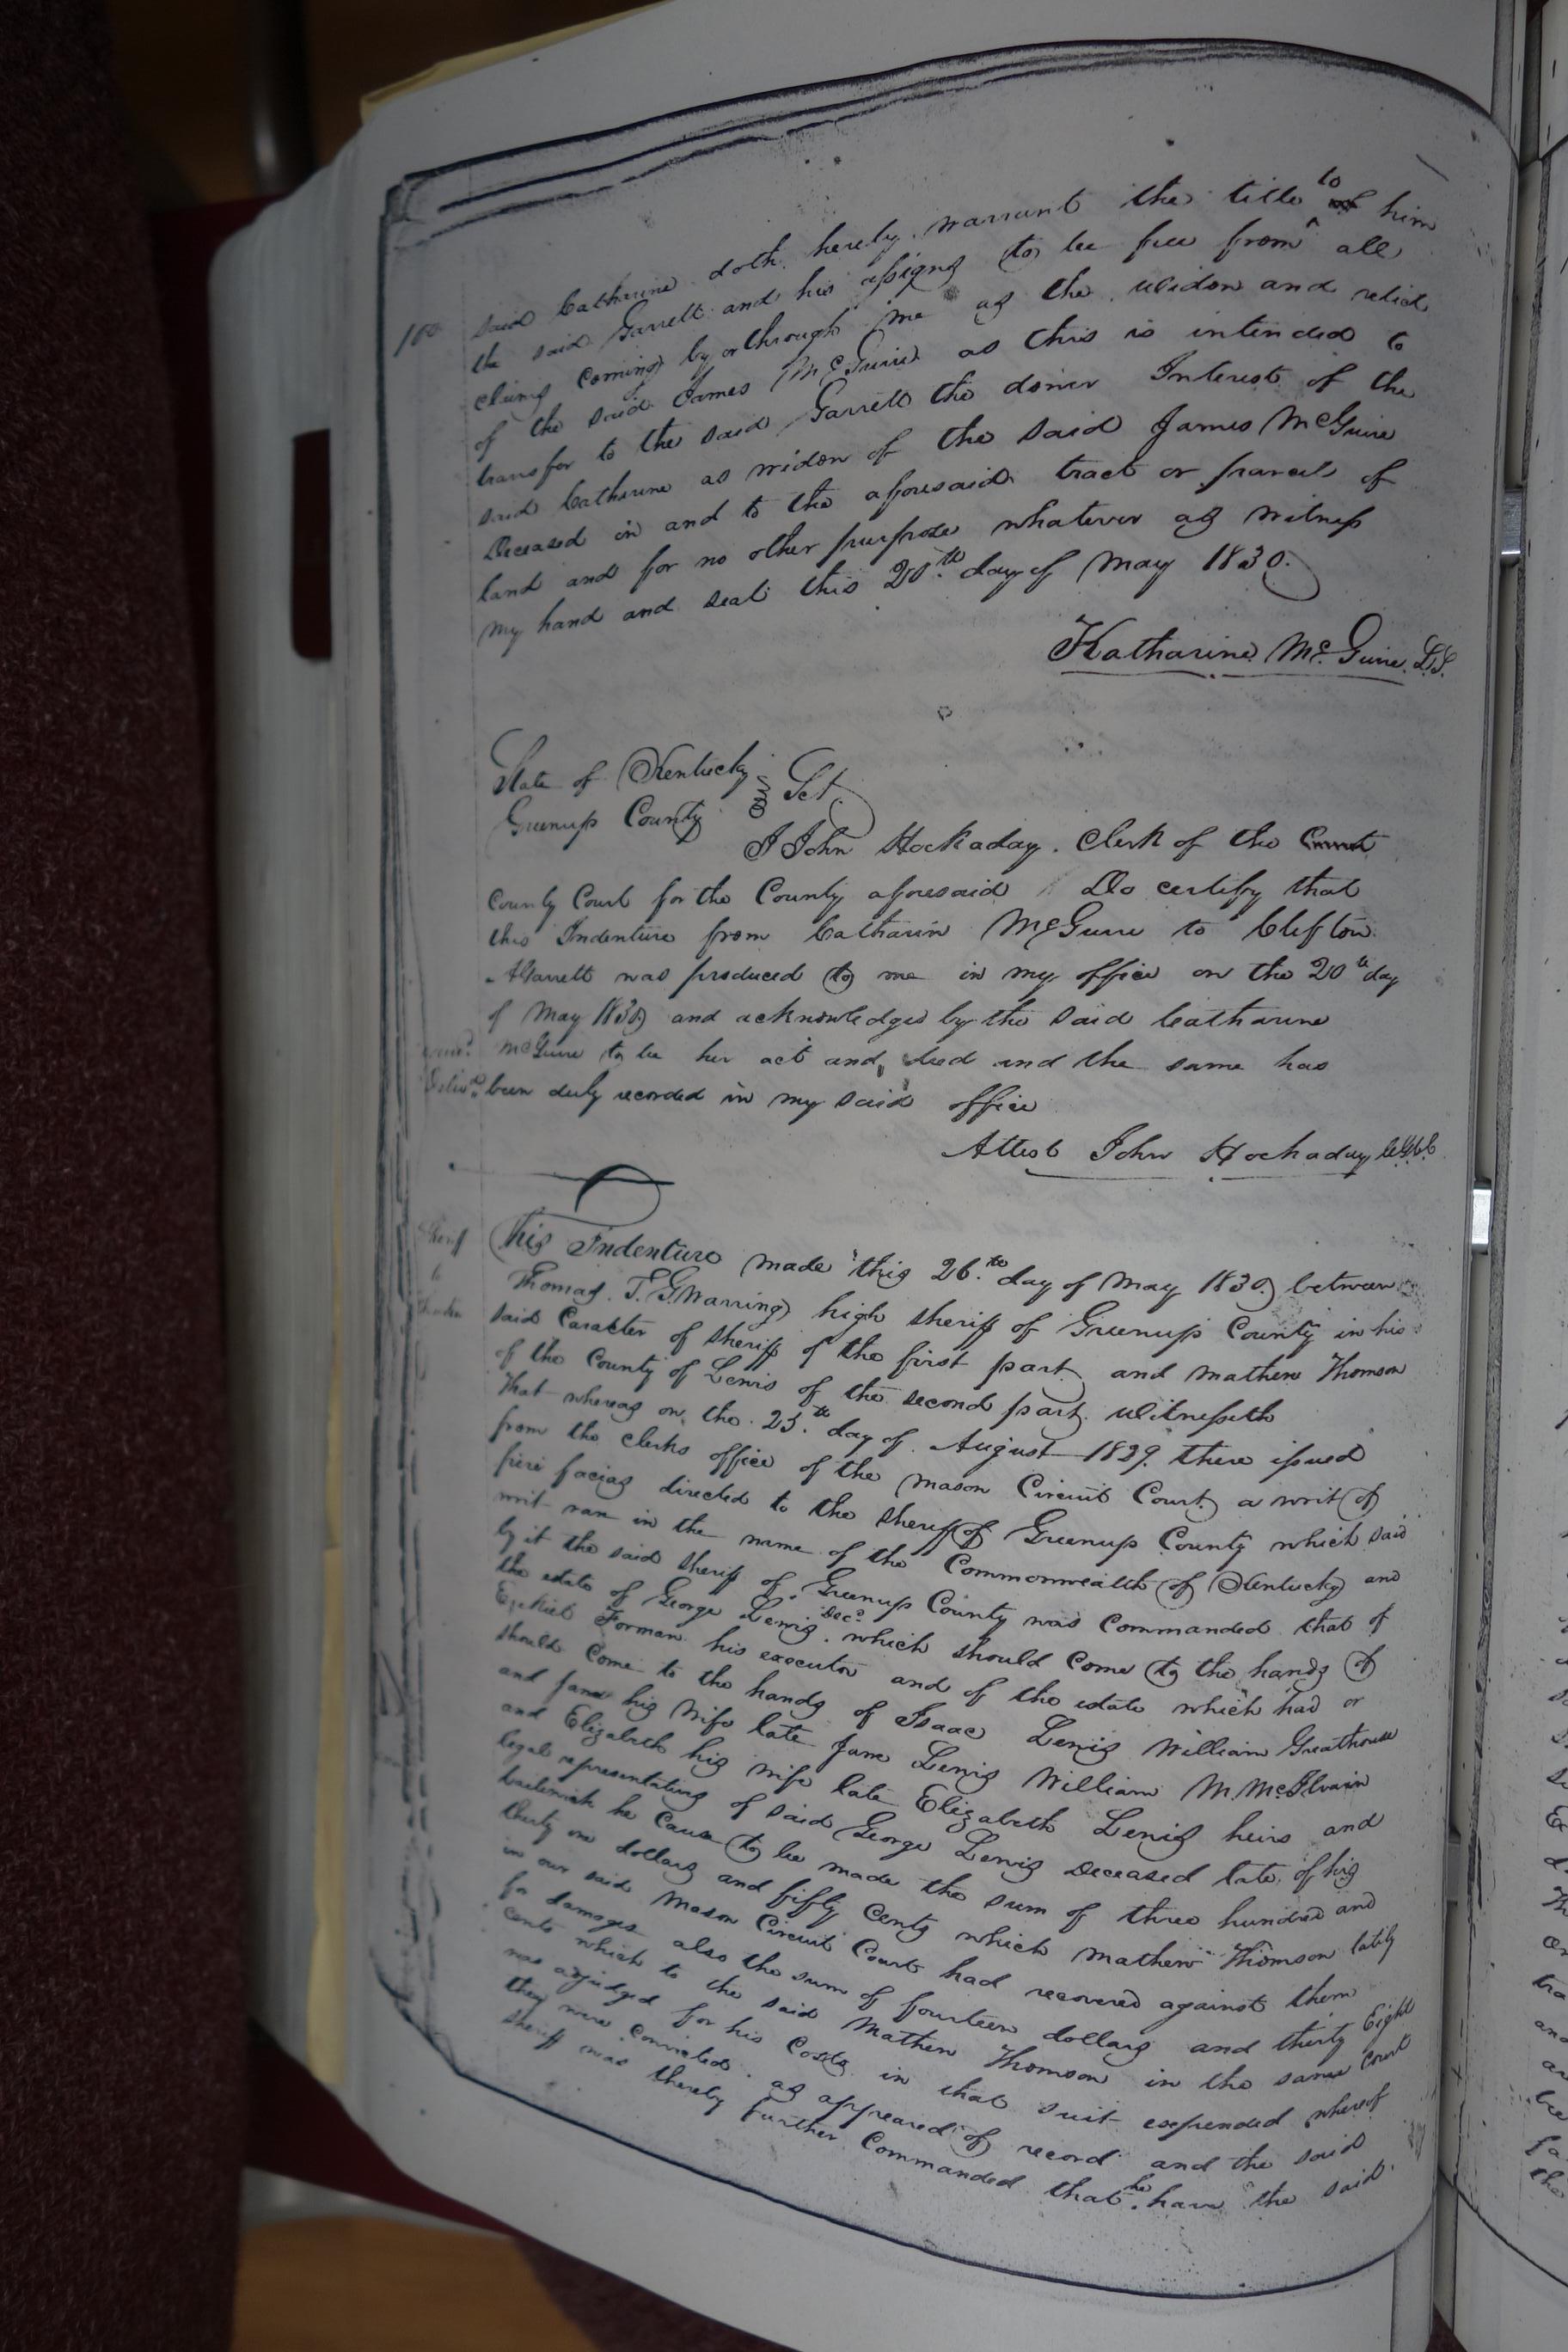 100
said Catharine doth hereby warrant the title to him
the said Garrett and his assigns to be free from all
claims coming by or through me as the widow and relict
of the said James McGuire as this is intended to
transfer to the said Garrett the dower Interest of the
said Catharine as widow of the said James McGuire
Deceased in and to the aforesaid tract or parcel of
land and for no other purpose whatever as witness
my hand and seal this 20th day of May 1830.
Katharine McGuire L.S.
State of Kentucky
Greenup County Sct.
I John Hockaday Clerk of the
County Court for the County aforesaid Do certify that
this Indenture from Catharin McGuire to Clifton
Garrett was produced to me in my office on the 20th day
of May 1830 and acknowledged by the said Catharine
McGuire to be her act and deed and the same has
been duly recorded in my said office
Attest John Hockaday
Sheriff
to
This Indenture made this 26th day of May 1830 between
Thomas T. G Warring high sheriff of Greenup County in his
said Caracter of sheriff of the first part and Mathew Thomson
of the County of Lewis of the second part Witnesseth
That whereas on the 25th day of August 1829 there issued
from the clerks office of the Mason Circuit Court a writ of
fieri facias directed to the sheriff of Greenup County which said
writ ran in the name of the Commonwealth of Kentucky and
by it the said sheriff of Greenup County was Commanded that of
the estate of George Lewis Decd. which should Come to the hands of
Ezekiel Forman his executor and of the estate which had or
should Come to the hands of Isaac Lewis William Greathouse
and Jane his Wife late Jane Lewis William M McIlvain
and Elizabeth his Wife late Elizabeth Lewis heirs and
legal representatives of said George Lewis Deceased late of his
bailiwick he Cause to be made the sum of three hundred and
thirty one dollars and fifty Cents which Mathew Thomson lately
in our said Mason Circuit Court had recovered against them
for damages also the sum of fourteen dollars and thirty Eight
cents which to the said Mathew Thomson in the same Court
was adjudged for his Costs in that suit expended whereof
they were convicted as appeared of record and the said
Sheriff was thereby further Commanded that he have the said